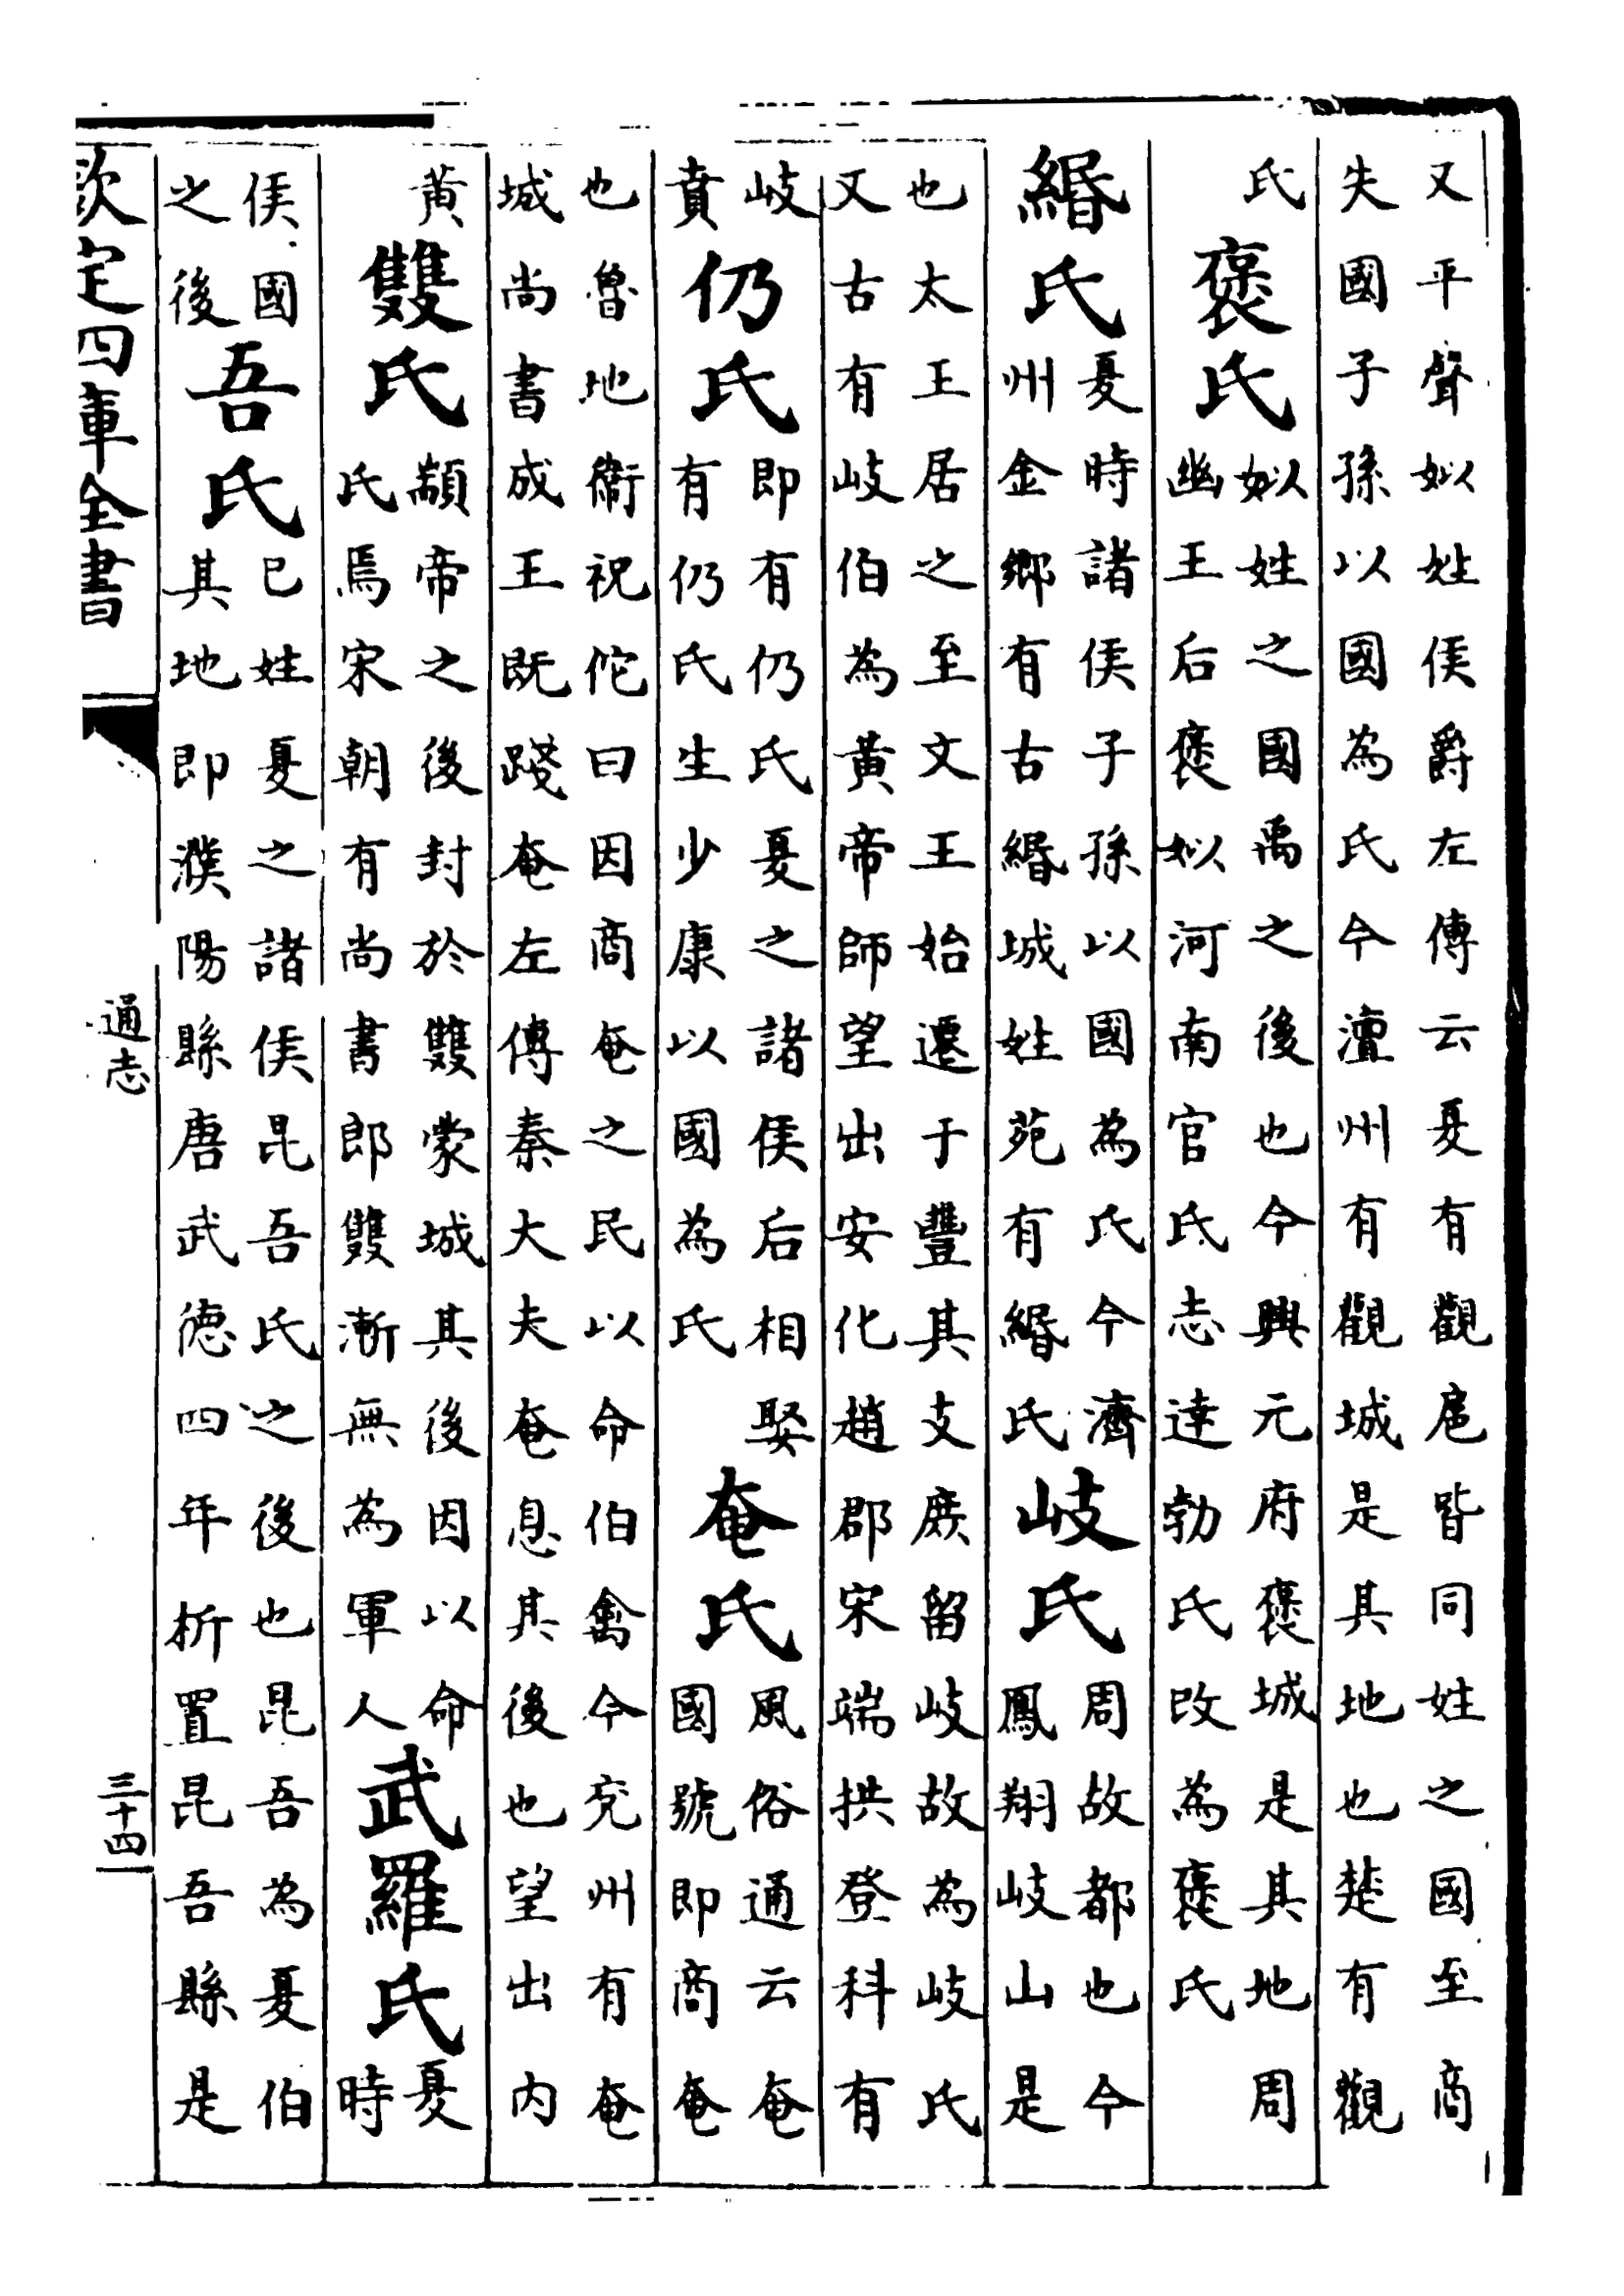 又平聲姒姓侯爵左傳云夏有觀扈皆同姓之國至商
失國子孫以國為氏今澶州有觀城是其地也楚有觀
氏
褒氏
姒姓之國禹之後也今興元府褒城是其地周
幽王后褒姒河南官氏志達勃氏改為褒氏
緡氏
夏時諸侯子孫以國為氏今濟
州金鄉有古緡城姓苑有緡氏
岐氏
周故都也今
鳳翔岐山是
也太王居之至文王始遷于豐其支庶留岐故為岐氏
又古有岐伯為黃帝師望出安化趙郡宋端拱登科有
岐
賁
仍氏
即有仍氏夏之諸侯后相娶
有仍氏生少康以國為氏
奄氏
風俗通云奄
國號即商奄
也魯地衞祝佗曰因商奄之民以命伯禽今兖州有奄
城尚書成王既踐奄左傳秦大夫奄息其後也望出內
黃
雙氏
顓帝之後封於雙蒙城其後因以命
氏焉宋朝有尚書郎雙漸無為軍人
武羅氏
夏
時
侯國
之後
吾氏
己姓夏之諸侯昆吾氏之後也昆吾為夏伯
其地即濮陽縣唐武德四年析置昆吾縣是
欽定四庫全書
通志
三十四